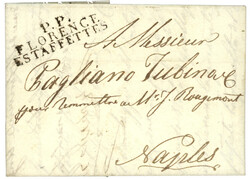 P.P.
FLORENCE
ESTAFFETTES
A Messieur
Pagliano Tubino &
pour Remmettre a Mr. J. Rougemont
Naples